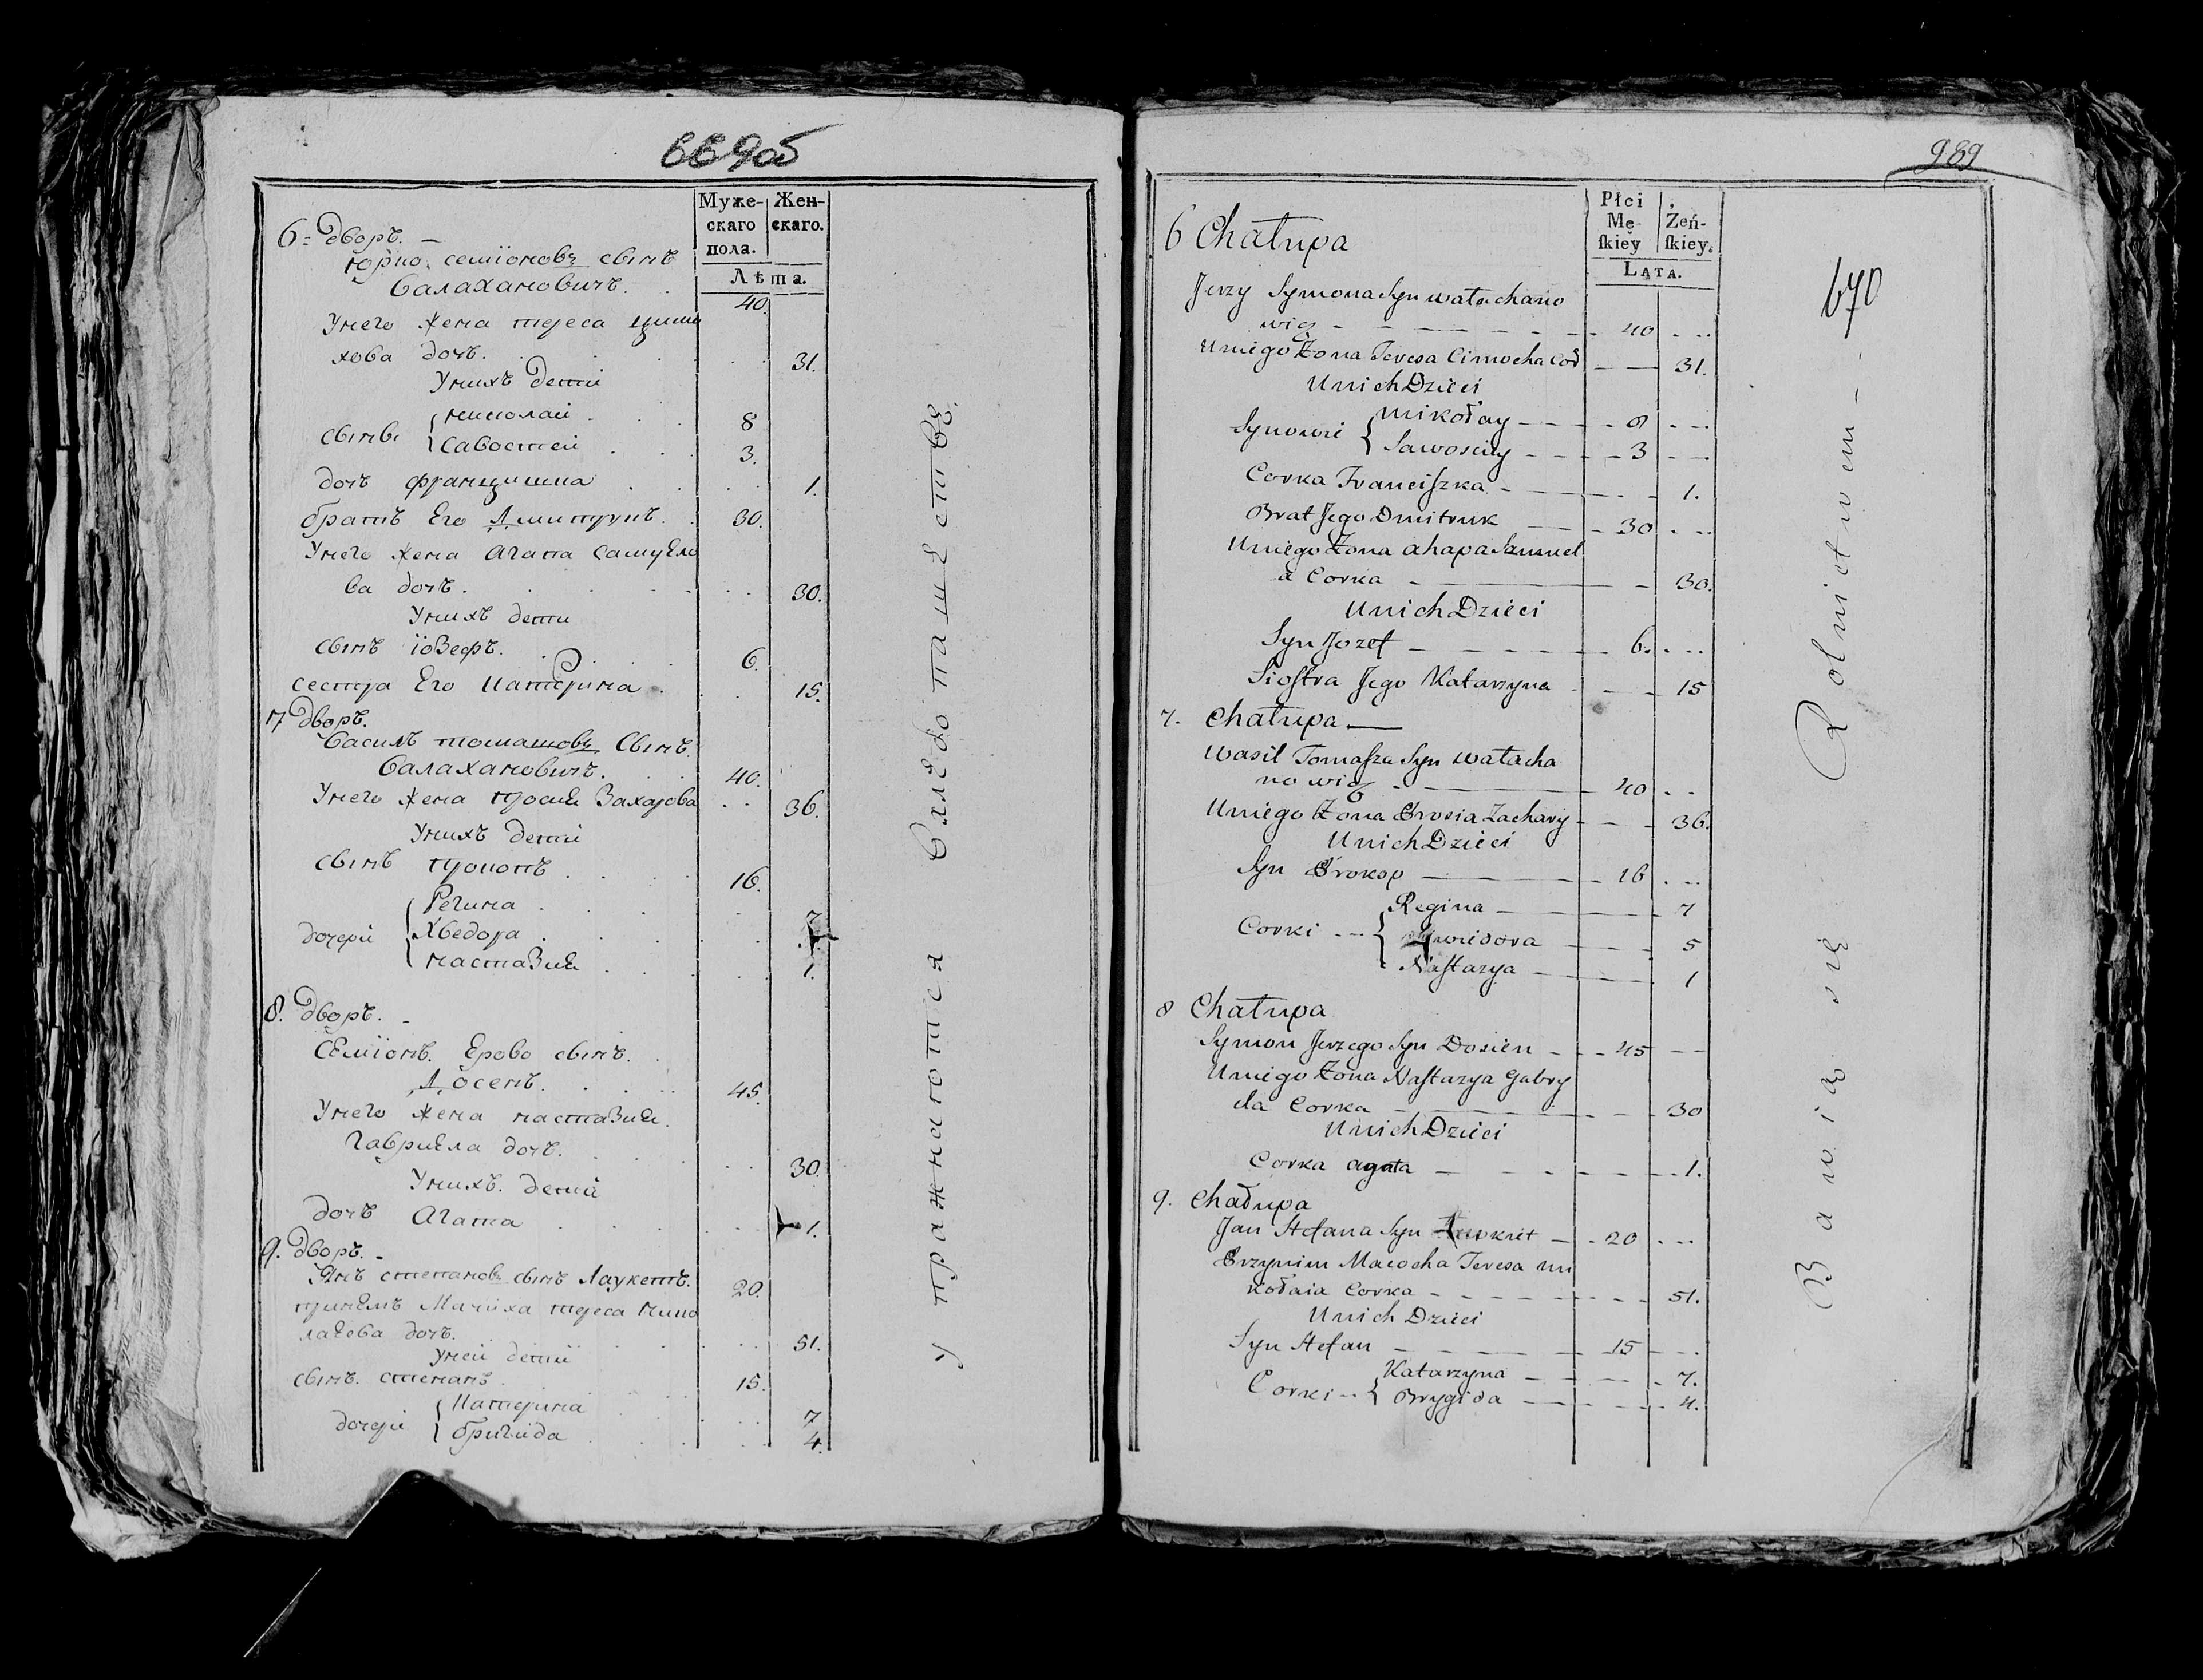 669об
Муже-
скаго
пола.
Жен-
скаго.
Лѣта.
6: дворъ.
Юрко семіоновъ сынъ
Валахановичъ. 40.
Унего жена тереса цимо
хова дочь. 31.
Унихъ дети
сынъ { николай 8
савостей 3.
дочь францишка 1.
братъ Его дмитрукъ. 30.
Унего жена агапа самуело
ва дочь. 30.
Унихъ дети
сынъ іозефъ. 6.
сестра Его катерина 15.
7 дворъ.
Василь томашовъ сынъ
Валахановичъ. 40.
Унего жена прося Захарова 36.
Унихъ дети
сынъ 16.
дочери { Регина 7
Хведора
настазия 1.
8. дворъ.
Семіонъ Ерово сынъ.
Досенъ. 45.
Унего жена настазия
гавриела дочь. 30.
Унихъ дети
дочь агата 1.
9. дворъ.
Янъ степановъ сынъ Лаукетъ. 20.
принемъ Мачиха тереса нико
лаева дочь. 51.
Уней дети
сынъ степанъ 15.
дочери { катерина 7
бригида 4.
Упражнаются вхлебопашестве.
989
670
Płci
Mę-
ſkiey
Żeń-
ſkiey.
Lata.
6 Chałupa
Jerzy Symona Syn wałachano
wicz 40
Uniego Żona Teresa Cimocha Cor 31.
Unich Dzieci
Synowie { Mikołay 8
Sawosciey 3
Corka Franciſzka 1.
Brat Jego Dmitruk 30
Uniego Żona ahapa Samuel
a Corka 30.
Unich Dzieci
Syn Jozef 6.
Sioſtra Jego Katarzyna 15
7. Chałupa
Wasil Tomaſza Syn wałacha
nowicz 40
Uniego Żona Prosia Zachary 36.
Unich Dzieci
Syn Prokop 16
Corki { Regina 7
Chwiedora 5
Naſtazya 1
8 Chałupa
Symon Jerzego Syn Dosien 45
Uniego Żona Naſtazya Gabry
ela Corka 30
Unich Dzieci
Corka agata 1.
9. Chałupa
Jan Stefana Syn 20
Przynim Macocha Teresa Mi
kołaia Corka 51.
Unich Dzieci
Syn Stefan 15
Corki { Katarzyna 7.
Brygida 4.
Bawią się Rolnictwem